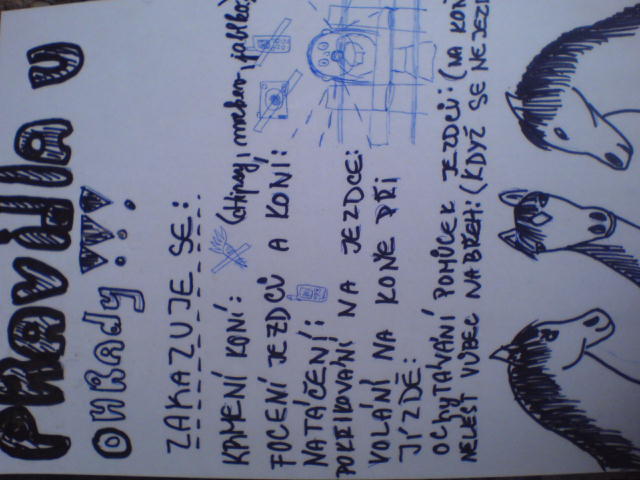 PRAVIDLA U
OHRADY!!!
ZAKAZUJE SE:
KRMENÍ KONÍ: (chipsy, mrkev, jablko)
FOCENÍ JEZDCŮ A KONÍ:
NATÁČENÍ:
POKŘIKOVÁNÍ NA JEZDCE:
VOLÁNÍ NA KONĚ PŘI
JÍZDĚ:
OCHYTÁVÁNÍ POMŮCEK JEZDCŮ: (NA KONĚ
NELÉST VŮBEC NA BŘEH: (KDYŽ SE NEJEZD